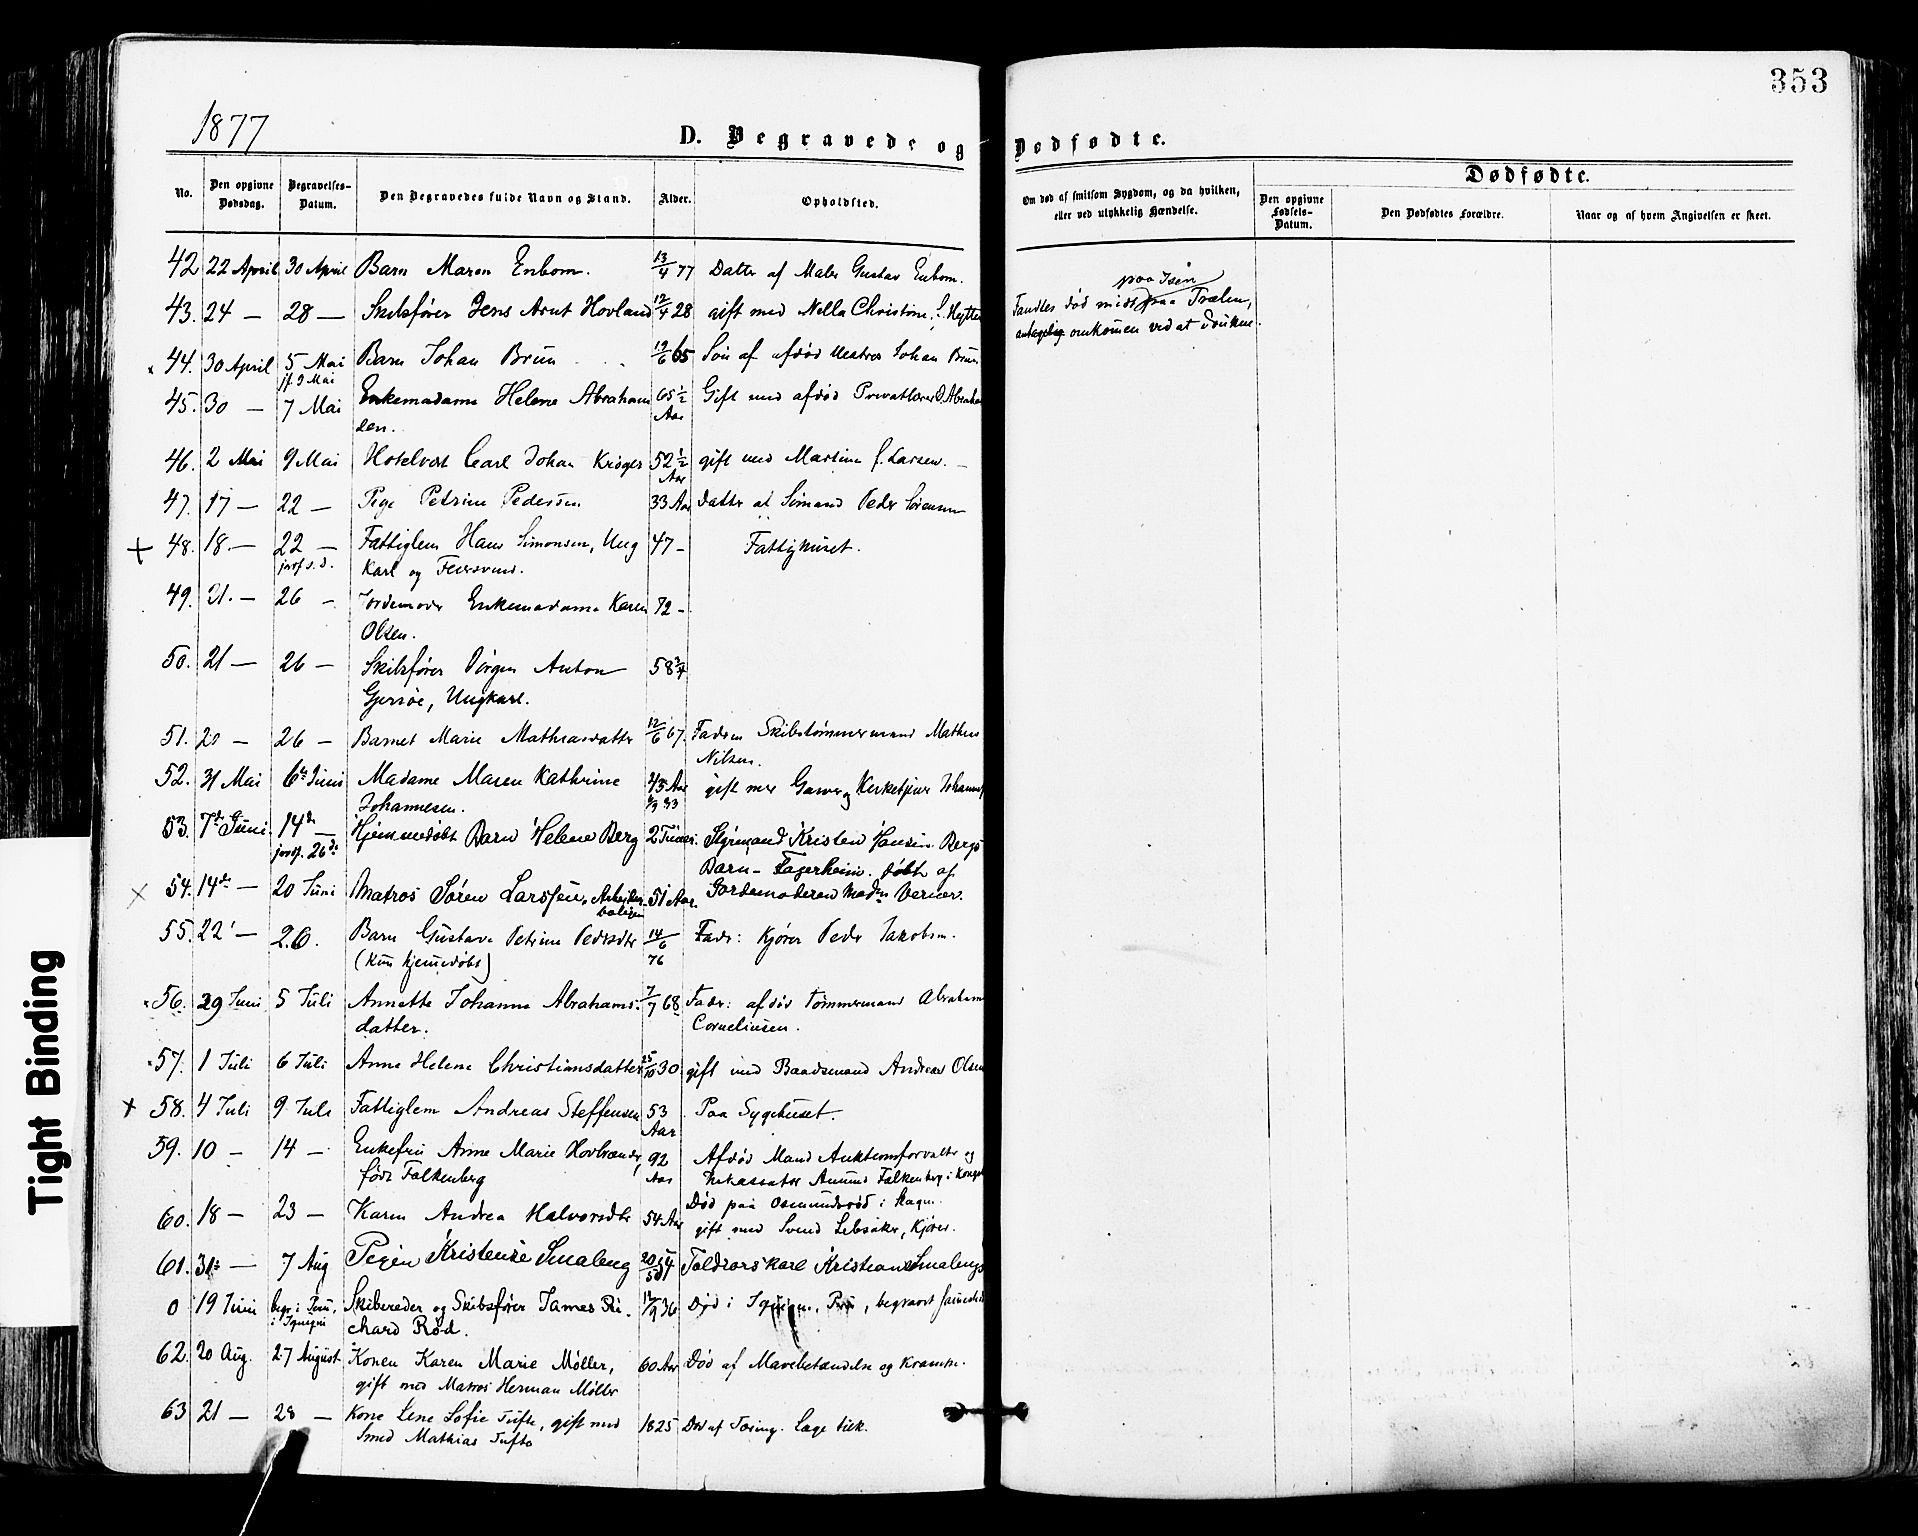 353
1877
D. Begravede og Dødfødte.
No.
Den opgivne Dødsdag.
Begravelses-Datum.
Den Begravedes fulde Navn og Stand.
Alder.
Opholdsted.
Om død af smitsom Sygdom, og da hvilken, eller ved ulykkelig Hændelse.
Dødfødte.
Den opgivne Fødsels-Datum.
Den Dødfødtes Forældre.
Naar og af hvem Angivelsen er skeet.
42 22 April 30 April Barn Maren Enbom. 13/4 77 Datter af Maler Gustav Enbom.
paa Isen
43. 24 — 28 — Skibsfører Jens Arnt Hovland 12/4 28 gift med Nella Christine f. Hytten Fandtes død midt paa Trælen,
antagelig omkomen ved at drukne.
44. 30 April 5 Mai Barn Johan Brun 19/6 65 Søn af afdød Matros Johan Brun
jf. 9 Mai
45. 30 — 7 Mai Enkemadame Helene Abraham 65 1/2 Gift med afdød Privatlærer O. Abraham
sen. Aar
46. 2 Mai 9 Mai Hotelvert Carl Johan Krøger 52 1/2 gift med Martine f. Larsen. —
Aar
47. 17 — 22 — Pige Petrine Pedersen 33 Aar Datter af Sømand Peder Sørensen
+ 48. 18. — 22 — Fattiglem Hans Simonsen, Ung 47 — Fattighuset.
jordf. s. d. karl og
49. 21. — 26 — Jordemoder Enkemadame Karen 72 —
Olsen.
50. 21 — 26 — Skibsfører Jørgen Anton 58 3/4
Gjersøe, Ungkarl.
51. 20 — 26 — Barnet Marie Mathiasdatter 12/6 67. Faderen Skibstømmermand Mathias
Nilsen.
52. 31 Mai 6te Juni Madame Maren Kathrine 43 Aar gift med Garver og Kirketjener Johannes
Johannesen. 33
53. 7de Juni 14de — Hjemmedøbt Barn Helene Berg 2 Timer. Styrmand Kristen Hansen Bergs
jordf. 26de Barn — Fagerheim. døbt af
× 54. 14de — 20 Juni Matros Søren Larssen, Arbejder 51 Aar. Jordemoderen Madm Verner.
boligen
55. 22 — 26. Barn Gustava Petrine Pedersdtr 14/6 Fader: Kjører Peder Jakobsen.
(kun hjemmedøbt) 76
56. 29 Juni 5 Juli Annette Johanne Abrahams- 7/7 68 Fader: afdød Tømmermand Abraham
datter. Corneliusen.
57. 1 Juli 6 Juli Anne Helene Christiansdatter 25/10 30 gift med Baadsmand Andreas Olsen
+ 58. 4 Juli 9 Juli Fattiglem Andreas Steffensen 53 Paa Sygehuset.
Aar
59. 10 — 14 — Enkefru Anne Marie Hovbrender, 92 Afdød Mand Auktionsforvalter og
født Falkenberg Aar Inkassator Amund Falkenberg i Kongsb
Død paa Osmundsrød i Skagen.
60. 18 — 23 — Karen Andrea Halvorsdtr 54 Aar gift med Svend Lebsaker, Kjører.
61. 31te — 7 Aug Pigen Kristense Smaleng 20/5 54 Toldrorskarl Kristian Smalengs
0 19 Juni begr. i Peru, Skibsreder og Skibsfører James Ri- 12/9 36 Død i Iquique, Peru, begravet sammesteds
i Iquique chard Rød.
62. 20 Aug. 27 August Konen Karen Marie Møller, 60 Aar Død af Mavebetændelse og Krampe.
gift med Matros Herman Møller
63 21 — 28 — Kone Lene Sofie Tufte, gift med 1825 Død af Tæring. Læge Tilk.
Smed Mathias Tufte
Tight Binding